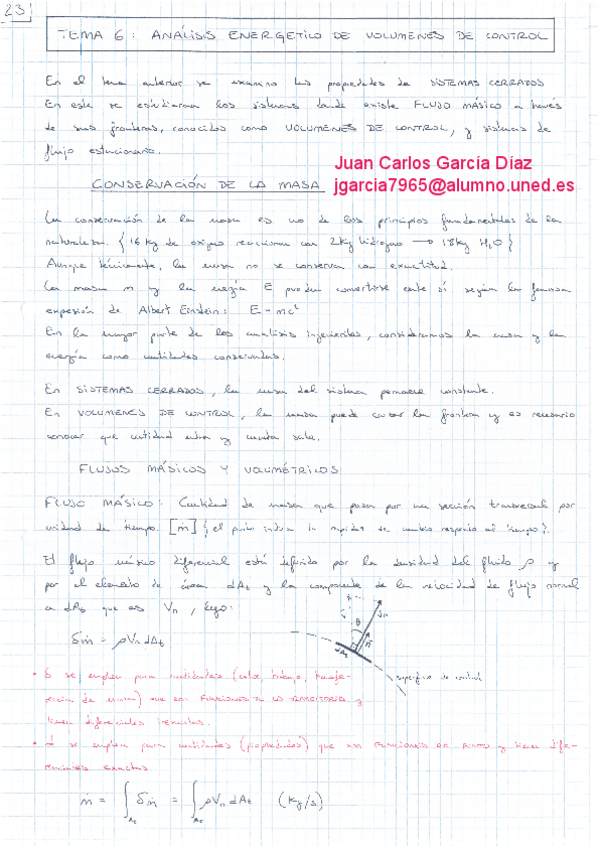 23
TEMA 6: ANÁLISIS ENERGÉTICO DE VOLUMENES DE CONTROL
En el tema anterior se examinó las propiedades de SISTEMAS CERRADOS
En este se estudiaran los sistemas donde existe FLUJO MÁSICO a través
de sus fronteras, conocidos como VOLUMENES DE CONTROL, y sistemas de
flujo estacionario.
Juan Carlos García Díaz
CONSERVACIÓN DE LA MASA
jgarcia7965@alumno.uned.es
La conservación de la masa es uno de los principios fundamentales de la
naturaleza. {16 kg de oxígeno reaccionan con 2kg hidrógeno → 18kg H₂O}
Aunque técnicamente, la masa no se conserva con exactitud.
La masa m y la energía E pueden convertirse entre sí según la famosa
expresión de Albert Einstein: E = mc²
En la mayor parte de los analisis ingenieriles, consideramos la masa y la
energía como cantidades conservadas.
En SISTEMAS CERRADOS, la masa del sistema permanece constante.
En VOLUMENES DE CONTROL, la masa puede cruzar la frontera y es necesario
conocer que cantidad entra y cuanta sale.
FLUJOS MÁSICOS Y VOLUMÉTRICOS
FLUJO MÁSICO: Cantidad de masa que pasa por una sección transversal por
unidad de tiempo [ṁ] {el punto indica la rapidez de cambio respecto al tiempo}.
El flujo másico diferencial está definido por la densidad del fluido ρ y
por el elemento de área dAt y la componente de la velocidad de flujo normal
a dAt que es Vn, luego:
δṁ = ρVndAt
θ
n
dAt
superficie de control
• δ se emplea para cantidades (calor, trabajo, transfe-
rencia de masa) que son FUNCIONES DE LA TRAYECTORIA y
tienen diferenciales inexactas.
• d se emplea para cantidades (propiedades) que son FUNCIONES DE PUNTO y tienen dife-
renciales exactas.
ṁ = ∫At δṁ = ∫At ρVndAt (kg/s)